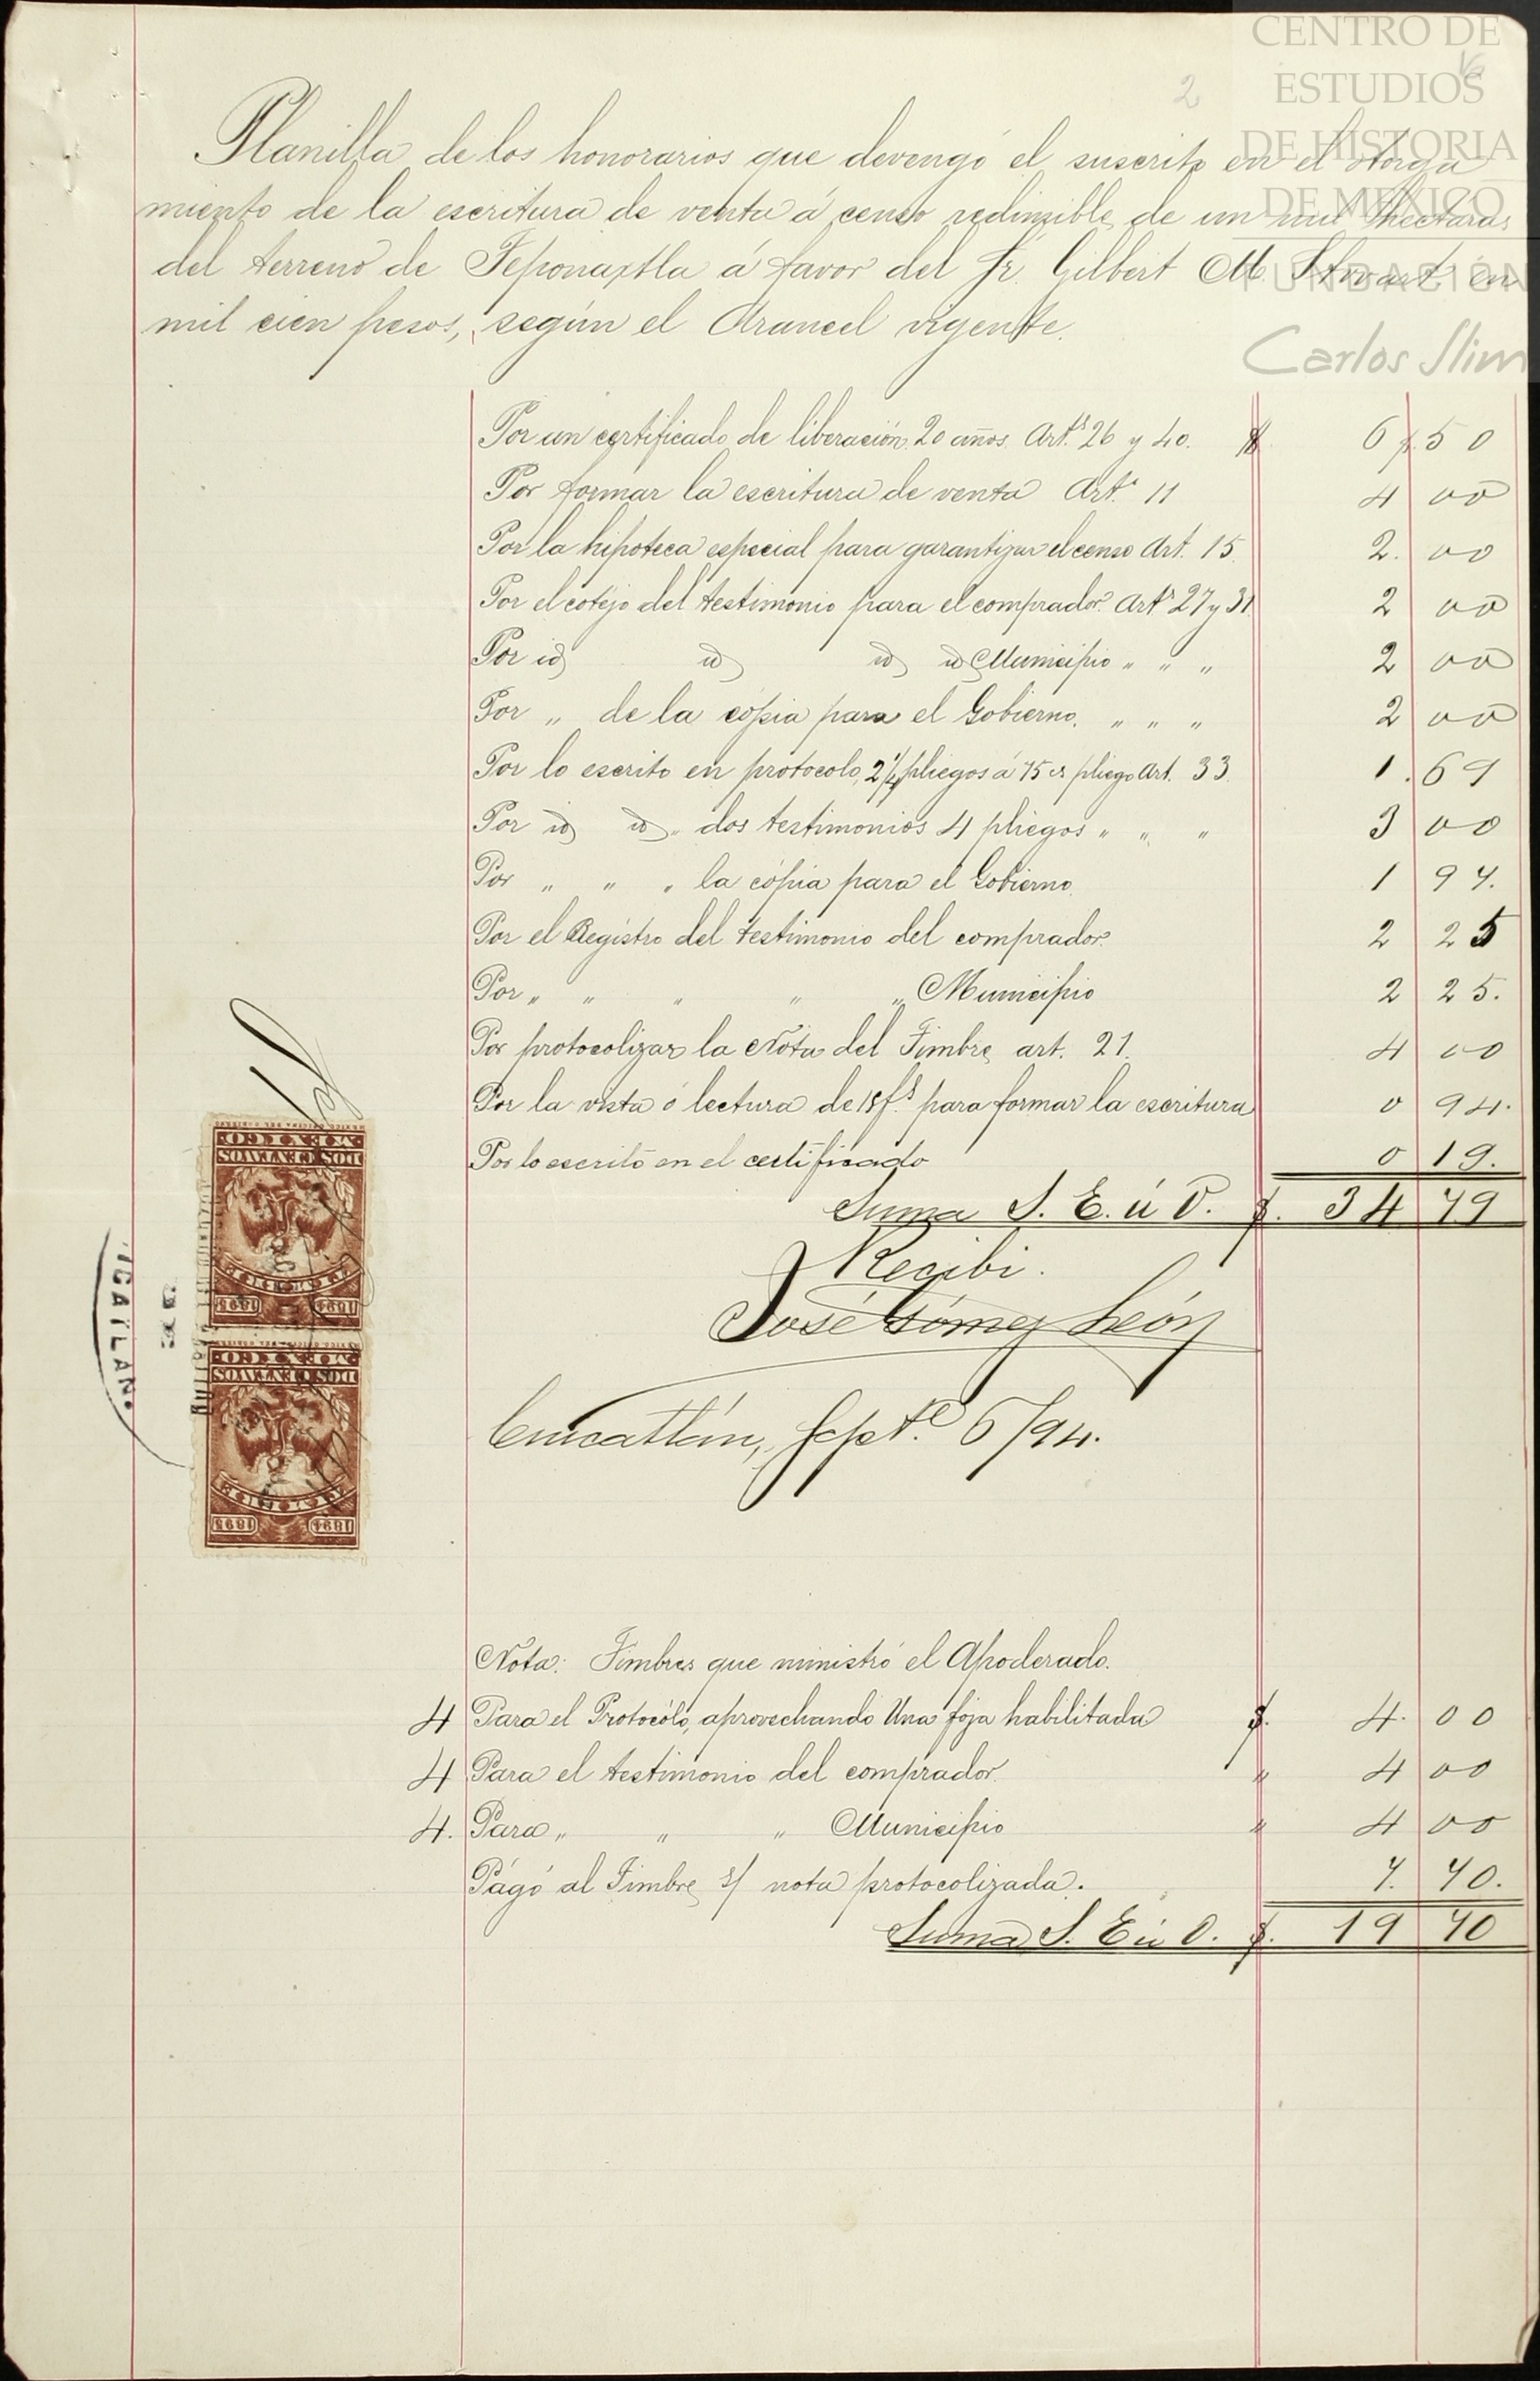 CENTRO DE
ESTUDIOS
DE HISTORIA
DE MEXICO
FUNDACIÓN
Carlos Slim
2
Planilla de los honorarios que devengó el suscrito en el otorga
miento de la escritura de venta á censo redimible de un mil hectaras
del terreno de Teponaxtla á favor del Sr. Gilbert M. Stwart en
mil cien pesos, según el Arancel vigente.
Por un certificado de liberación 20 años Art.s 26 y 40. $ 6 50
Por formar la escritura de venta Art. 11 4 00
Por la hipoteca especial para garantizar el censo Art. 15. 2. 00
Por el cotejo del testimonio para el comprador. Arts 27 y 31. 2 00
Por id id id id Municipio " " " 2 00
Por " de la cópia para el Gobierno. " " " 2 00
Por lo escrito en protocolo, 2 1/4 pliegos á 75 cs pliego Art. 33. 1.69
Por id id " dos testimonios 4 pliegos " " " 3 00
Por " " " la cópia para el Gobierno. 1 97.
Por el Registro del testimonio del comprador. 2 25
Por " " " " " Municipio 2 25.
Por protocolizar la Nota del Timbre art. 21. 4 00
Por la vista ó lectura de 15 fs. para formar la escritura 0 94.
Por lo escrito en el certificado 0 19.
Suma S. E. ú O. $. 34 79
Recibi.
José Gómez León
Cuicatlán, Septe. 6/94.
MEXICO
DOS CENTAVOS
1894 1895
MEXICO
DOS CENTAVOS
1894 1895
ICATLAN.
Nota: Timbres que ministró el Apoderado.
4 Para el Protocólo, aprovechando Una foja habilitada $. 4. 00
4 Para el testimonio del comprador. " 4 00
4. Para " " " Municipio " 4 00
Págó al Timbre s/ nota protocolizada. 7. 70.
Suma S. E ú O. $. 19 70